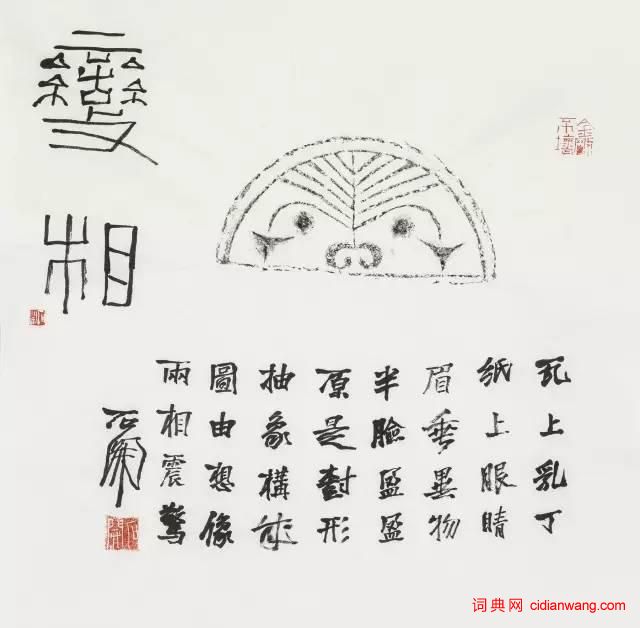 變相
金剛
不壞
瓦上乳丁
紙上眼睛
眉垂異物
半臉盈盈
原是對形
抽象構成
圖由想像
兩相震驚
石開
词典网 cidianwang.com